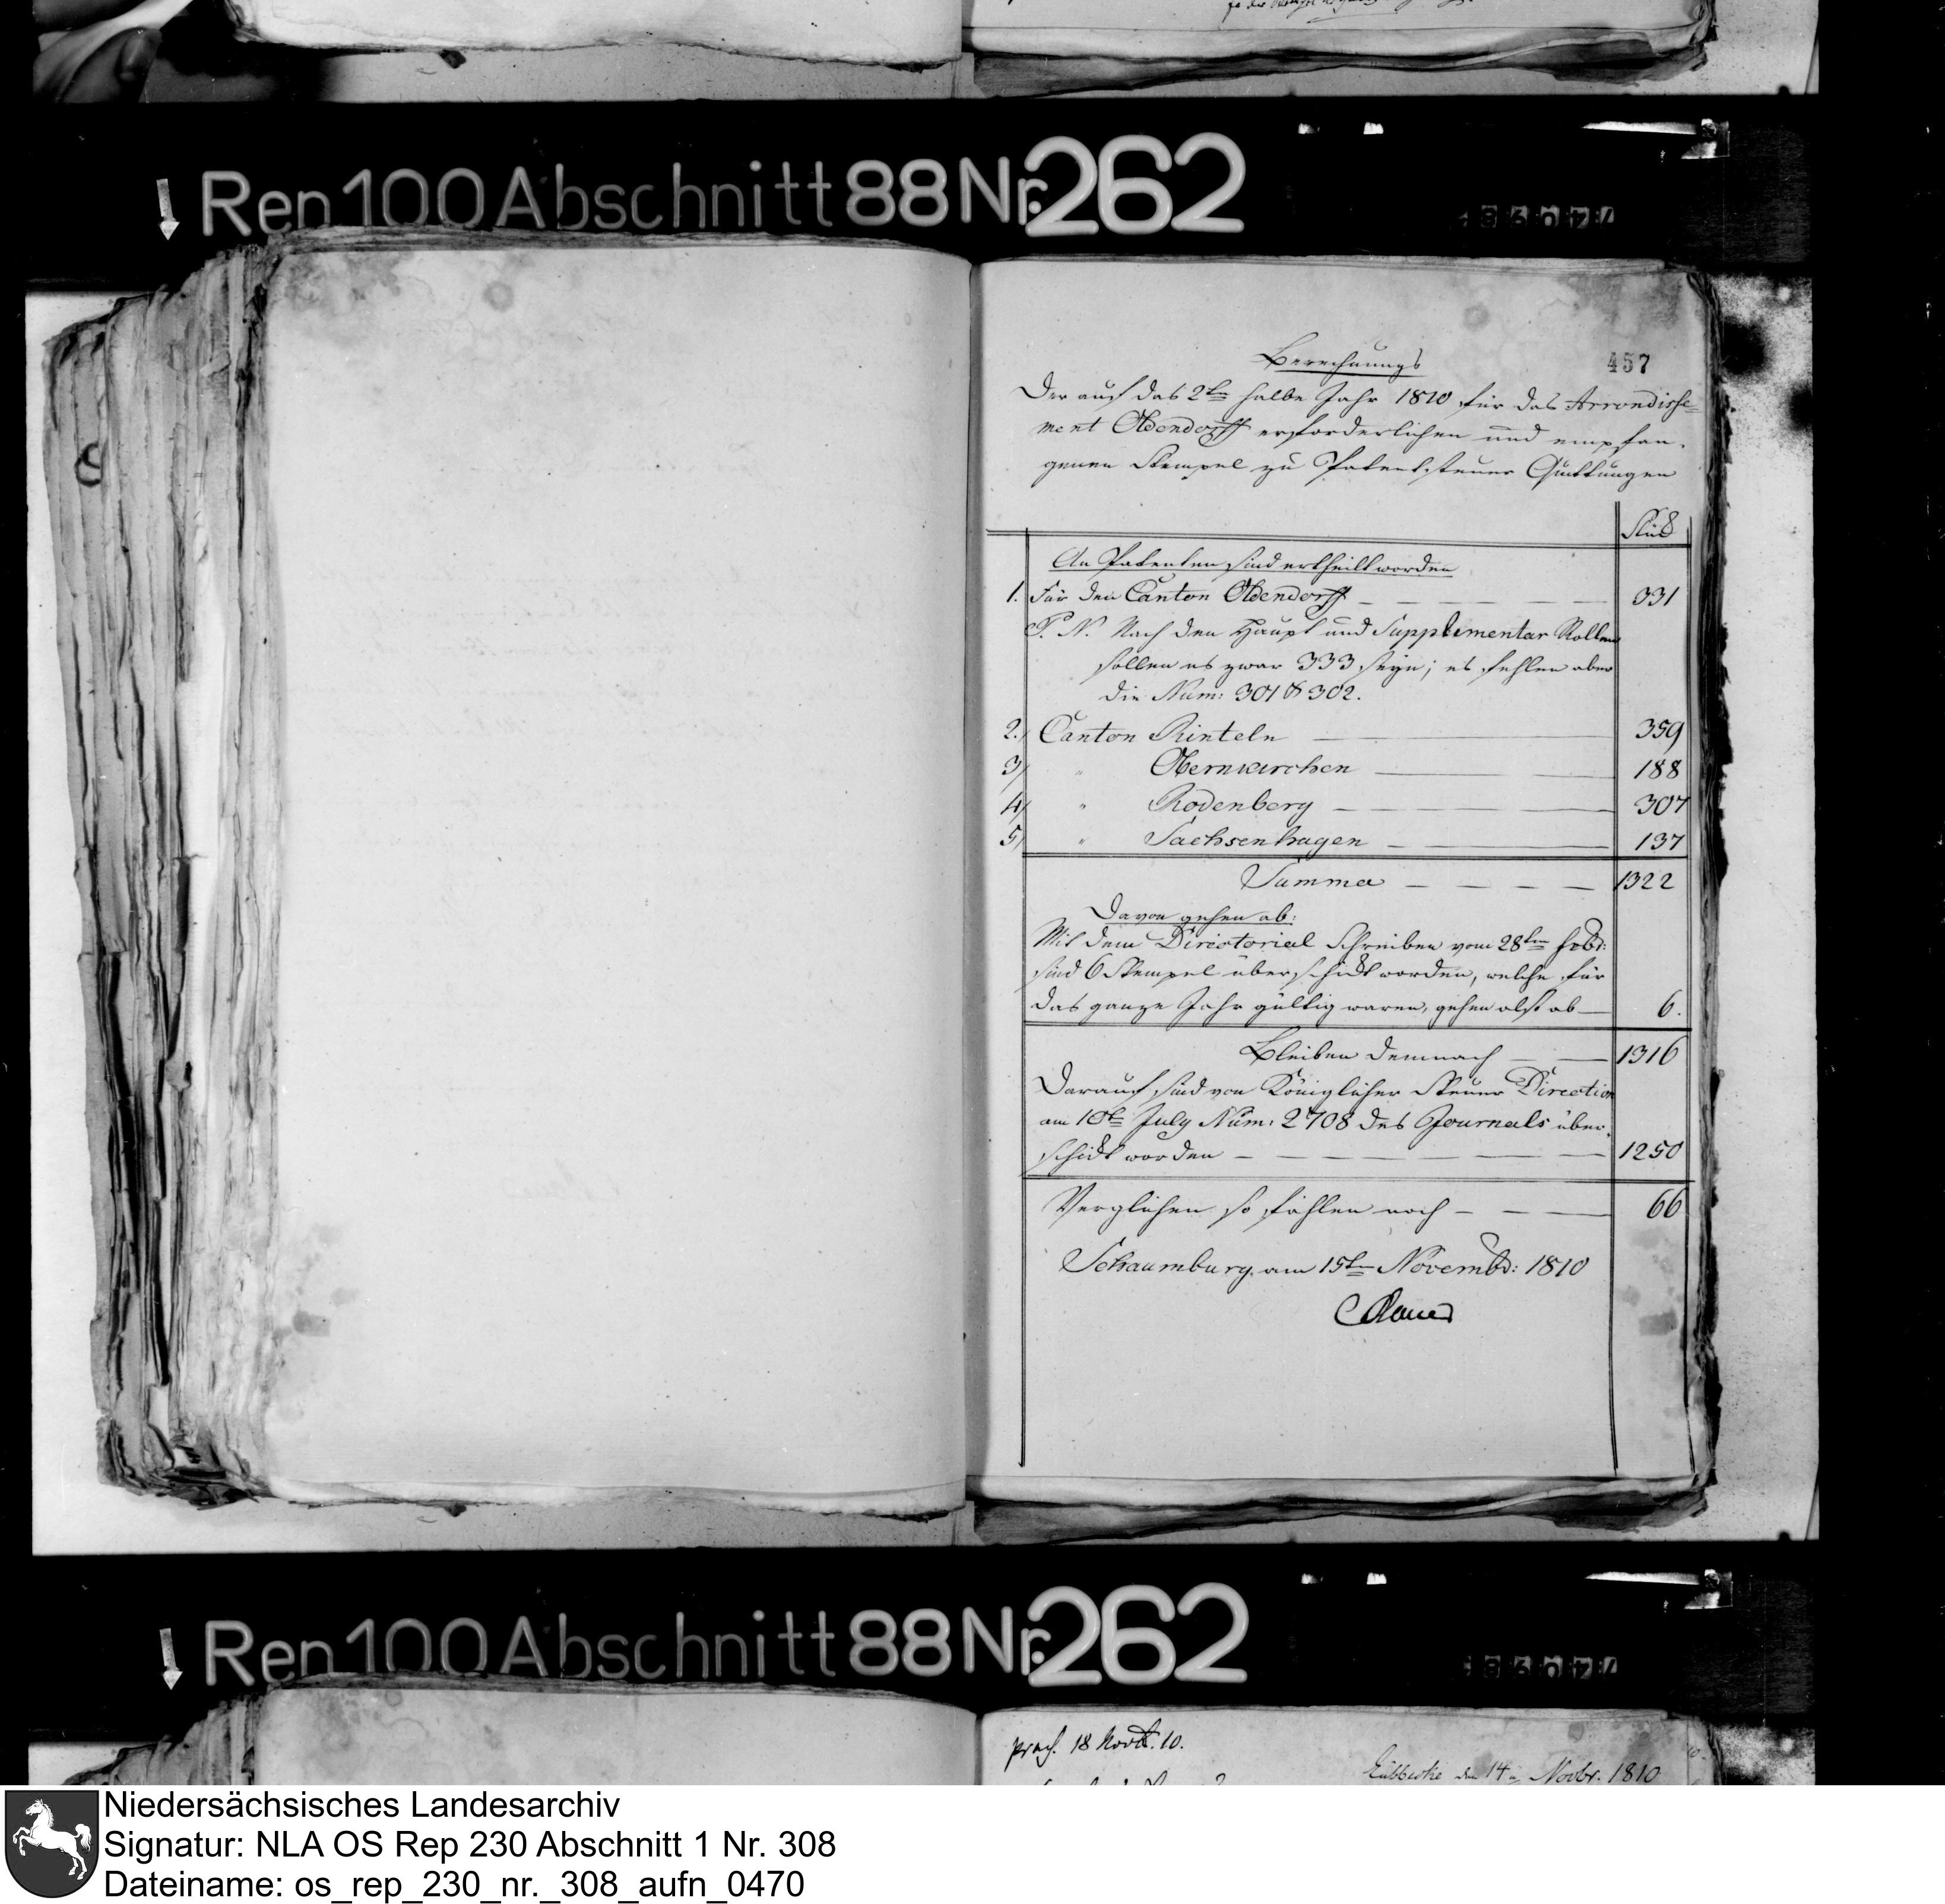 Rep 100 Abschnitt 88 Nr. 262
457
Berechnungs
Der auf das 2te halbe Jahr 1810 für das Arrondisse=
ment Oldendorff erforderlichen und empfan,
genen Stempel zu Patentsteuer Quittungen
Stük
An Patenten sind ertheilt worden
1. Für den Canton Oldendorff 331
P. N. Nach den Haupt und Supplementar Rollen
sollen es zwar 333 seyn; es fehlen aber
die Num: 301 & 302.
2. Canton Rinteln 359
3) " Obernkirchen 188
4) " Rodenberg 307
5) " Sachsenhagen 137
Summa 1322
Davon gehen ab:
Mit dem Directorial Schreiben vom 28ten
sind 6 Stempel überschikt worden, welche für
das ganze Jahr gültig waren, gehen also ab 6.
Bleiben demnach 1316
Darauf sind von Königlicher Steuer Direction
am 10t July Num: 2708 des Journals über,
schikt worden 1250
Verglichen so fählen noch 66
Schaumburg am 15ten Novembr: 1810
Rep 100 Abschnitt 88 Nr. 262
18 Novbr. 10.
Lübbecke den 14 Novbr. 1810
Niedersächsisches Landesarchiv
Signatur: NLA OS Rep 230 Abschnitt 1 Nr. 308
Dateiname: os_rep_230_nr._308_aufn_0470